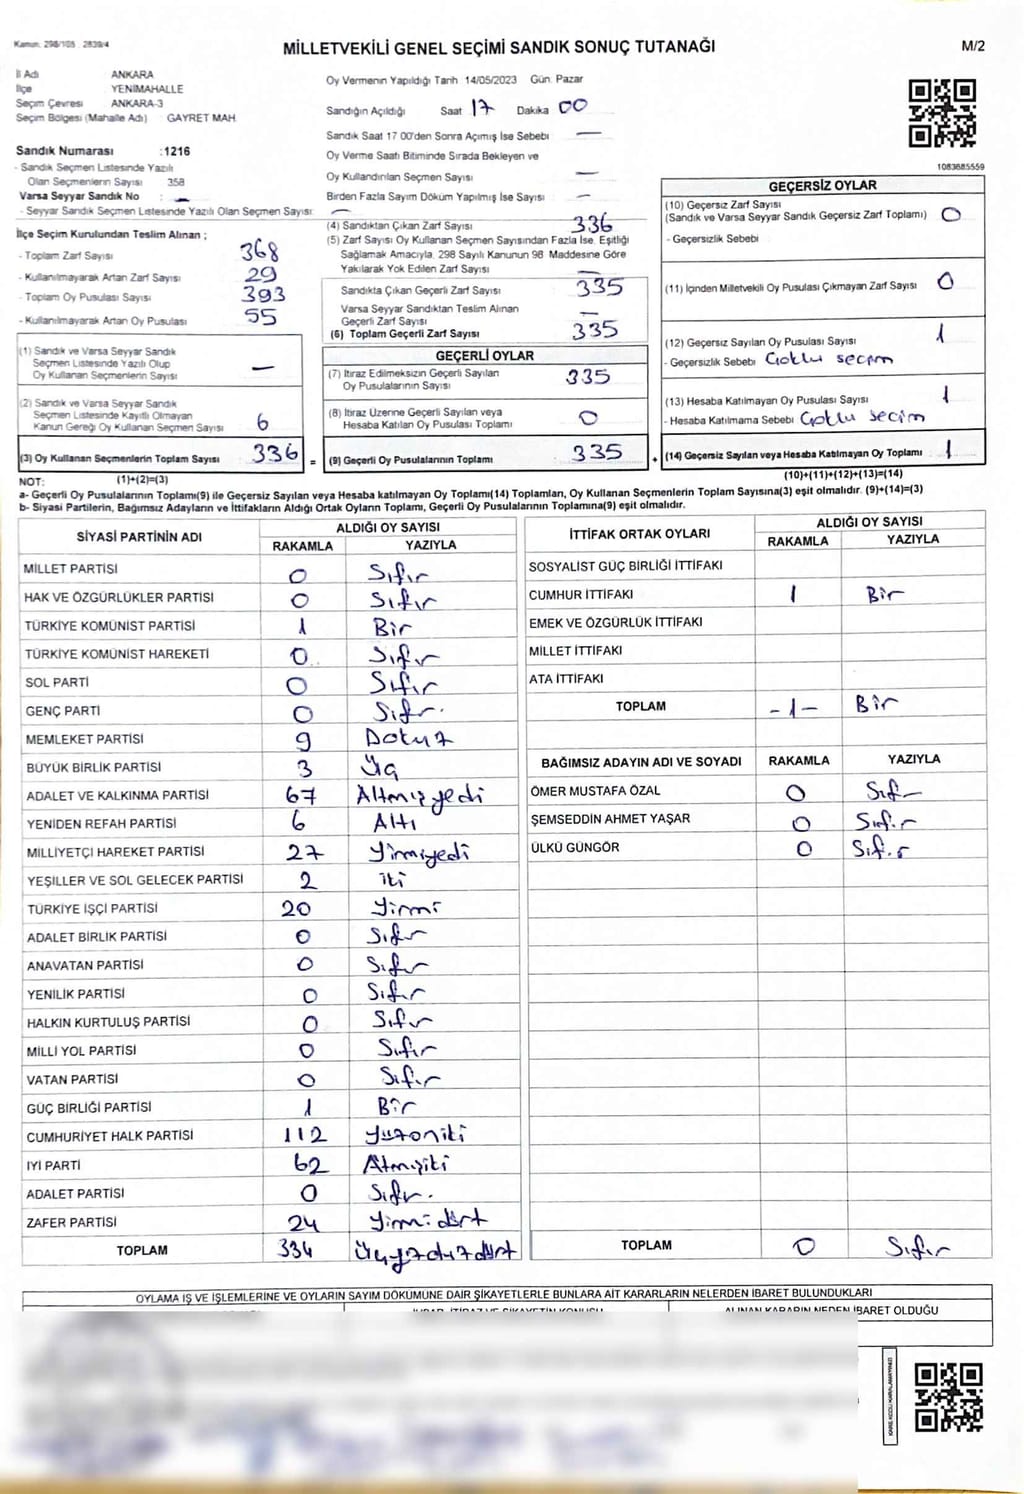 Kanun: 298/105 : 2839/4
MİLLETVEKİLİ GENEL SEÇİMİ SANDIK SONUÇ TUTANAĞI
M/2
İl Adı ANKARA
İlçe YENİMAHALLE
Seçim Çevresi ANKARA-3
Seçim Bölgesi (Mahalle Adı) GAYRET MAH.
Sandık Numarası :1216
- Sandık Seçmen Listesinde Yazılı
Olan Seçmenlerin Sayısı 358
Varsa Seyyar Sandık No : —
- Seyyar Sandık Seçmen Listesinde Yazılı Olan Seçmen Sayısı: —
İlçe Seçim Kurulundan Teslim Alınan ;
- Toplam Zarf Sayısı 368
- Kullanılmayarak Artan Zarf Sayısı 29
- Toplam Oy Pusulası Sayısı 393
- Kullanılmayarak Artan Oy Pusulası 55
(1) Sandık ve Varsa Seyyar Sandık
Seçmen Listesinde Yazılı Olup
Oy Kullanan Seçmenlerin Sayısı —
(2) Sandık ve Varsa Seyyar Sandık
Seçmen Listesinde Kayıtlı Olmayan
Kanun Gereği Oy Kullanan Seçmen Sayısı 6
(3) Oy Kullanan Seçmenlerin Toplam Sayısı 336 =
Oy Vermenin Yapıldığı Tarih 14/05/2023 Gün: Pazar
Sandığın Açıldığı Saat 17 Dakika 00
Sandık Saat 17:00'den Sonra Açılmış İse Sebebi —
Oy Verme Saati Bitiminde Sırada Bekleyen ve
Oy Kullandırılan Seçmen Sayısı —
Birden Fazla Sayım Döküm Yapılmış İse Sayısı —
(4) Sandıktan Çıkan Zarf Sayısı 336
(5) Zarf Sayısı Oy Kullanan Seçmen Sayısından Fazla İse, Eşitliği
Sağlamak Amacıyla, 298 Sayılı Kanunun 98. Maddesine Göre
Yakılarak Yok Edilen Zarf Sayısı —
Sandıkta Çıkan Geçerli Zarf Sayısı 335
Varsa Seyyar Sandıktan Teslim Alınan
Geçerli Zarf Sayısı —
(6) Toplam Geçerli Zarf Sayısı 335
GEÇERLİ OYLAR
(7) İtiraz Edilmeksizin Geçerli Sayılan
Oy Pusulalarının Sayısı 335
(8) İtiraz Üzerine Geçerli Sayılan veya
Hesaba Katılan Oy Pusulası Toplamı 0
(9) Geçerli Oy Pusulalarının Toplamı 335 +
1083685559
GEÇERSİZ OYLAR
(10) Geçersiz Zarf Sayısı
(Sandık ve Varsa Seyyar Sandık Geçersiz Zarf Toplamı) 0
- Geçersizlik Sebebi
(11) İçinden Milletvekili Oy Pusulası Çıkmayan Zarf Sayısı 0
(12) Geçersiz Sayılan Oy Pusulası Sayısı 1
- Geçersizlik Sebebi Çoklu seçim
(13) Hesaba Katılmayan Oy Pusulası Sayısı 1
- Hesaba Katılmama Sebebi Çoklu seçim
(14) Geçersiz Sayılan veya Hesaba Katılmayan Oy Toplamı 1
NOT: (1)+(2)=(3) (10)+(11)+(12)+(13)=(14)
a- Geçerli Oy Pusulalarının Toplamı(9) ile Geçersiz Sayılan veya Hesaba katılmayan Oy Toplamı(14) Toplamları, Oy Kullanan Seçmenlerin Toplam Sayısına(3) eşit olmalıdır. (9)+(14)=(3)
b- Siyasi Partilerin, Bağımsız Adayların ve İttifakların Aldığı Ortak Oyların Toplamı, Geçerli Oy Pusulalarının Toplamına(9) eşit olmalıdır.
SİYASİ PARTİNİN ADI ALDIĞI OY SAYISI
RAKAMLA YAZIYLA
MİLLET PARTİSİ 0 Sıfır
HAK VE ÖZGÜRLÜKLER PARTİSİ 0 Sıfır
TÜRKİYE KOMÜNİST PARTİSİ 1 Bir
TÜRKİYE KOMÜNİST HAREKETİ 0 Sıfır
SOL PARTİ 0 Sıfır
GENÇ PARTİ 0 Sıfır
MEMLEKET PARTİSİ 9 Dokuz
BÜYÜK BİRLİK PARTİSİ 3 Üç
ADALET VE KALKINMA PARTİSİ 67 Altmışyedi
YENİDEN REFAH PARTİSİ 6 Altı
MİLLİYETÇİ HAREKET PARTİSİ 27 Yirmiyedi
YEŞİLLER VE SOL GELECEK PARTİSİ 2 iki
TÜRKİYE İŞÇİ PARTİSİ 20 Yirmi
ADALET BİRLİK PARTİSİ 0 Sıfır
ANAVATAN PARTİSİ 0 Sıfır
YENİLİK PARTİSİ 0 Sıfır
HALKIN KURTULUŞ PARTİSİ 0 Sıfır
MİLLİ YOL PARTİSİ 0 Sıfır
VATAN PARTİSİ 0 Sıfır
GÜÇ BİRLİĞİ PARTİSİ 1 Bir
CUMHURİYET HALK PARTİSİ 112 Yüzoniki
İYİ PARTİ 62 Atmışiki
ADALET PARTİSİ 0 Sıfır.
ZAFER PARTİSİ 24 Yirmidört
TOPLAM 334 Üçyüzotuzdört
İTTİFAK ORTAK OYLARI ALDIĞI OY SAYISI
RAKAMLA YAZIYLA
SOSYALİST GÜÇ BİRLİĞİ İTTİFAKI
CUMHUR İTTİFAKI 1 Bir
EMEK VE ÖZGÜRLÜK İTTİFAKI
MİLLET İTTİFAKI
ATA İTTİFAKI
TOPLAM -1- Bir
BAĞIMSIZ ADAYIN ADI VE SOYADI RAKAMLA YAZIYLA
ÖMER MUSTAFA ÖZAL 0 Sıfır
ŞEMSEDDİN AHMET YAŞAR 0 Sıfır
ÜLKÜ GÜNGÖR 0 Sıfır
TOPLAM 0 Sıfır
OYLAMA İŞ VE İŞLEMLERİNE VE OYLARIN SAYIM DÖKÜMÜNE DAİR ŞİKAYETLERLE BUNLARA AİT KARARLARIN NELERDEN İBARET BULUNDUKLARI
ALINAN KARARIN NEDEN İBARET OLDUĞU